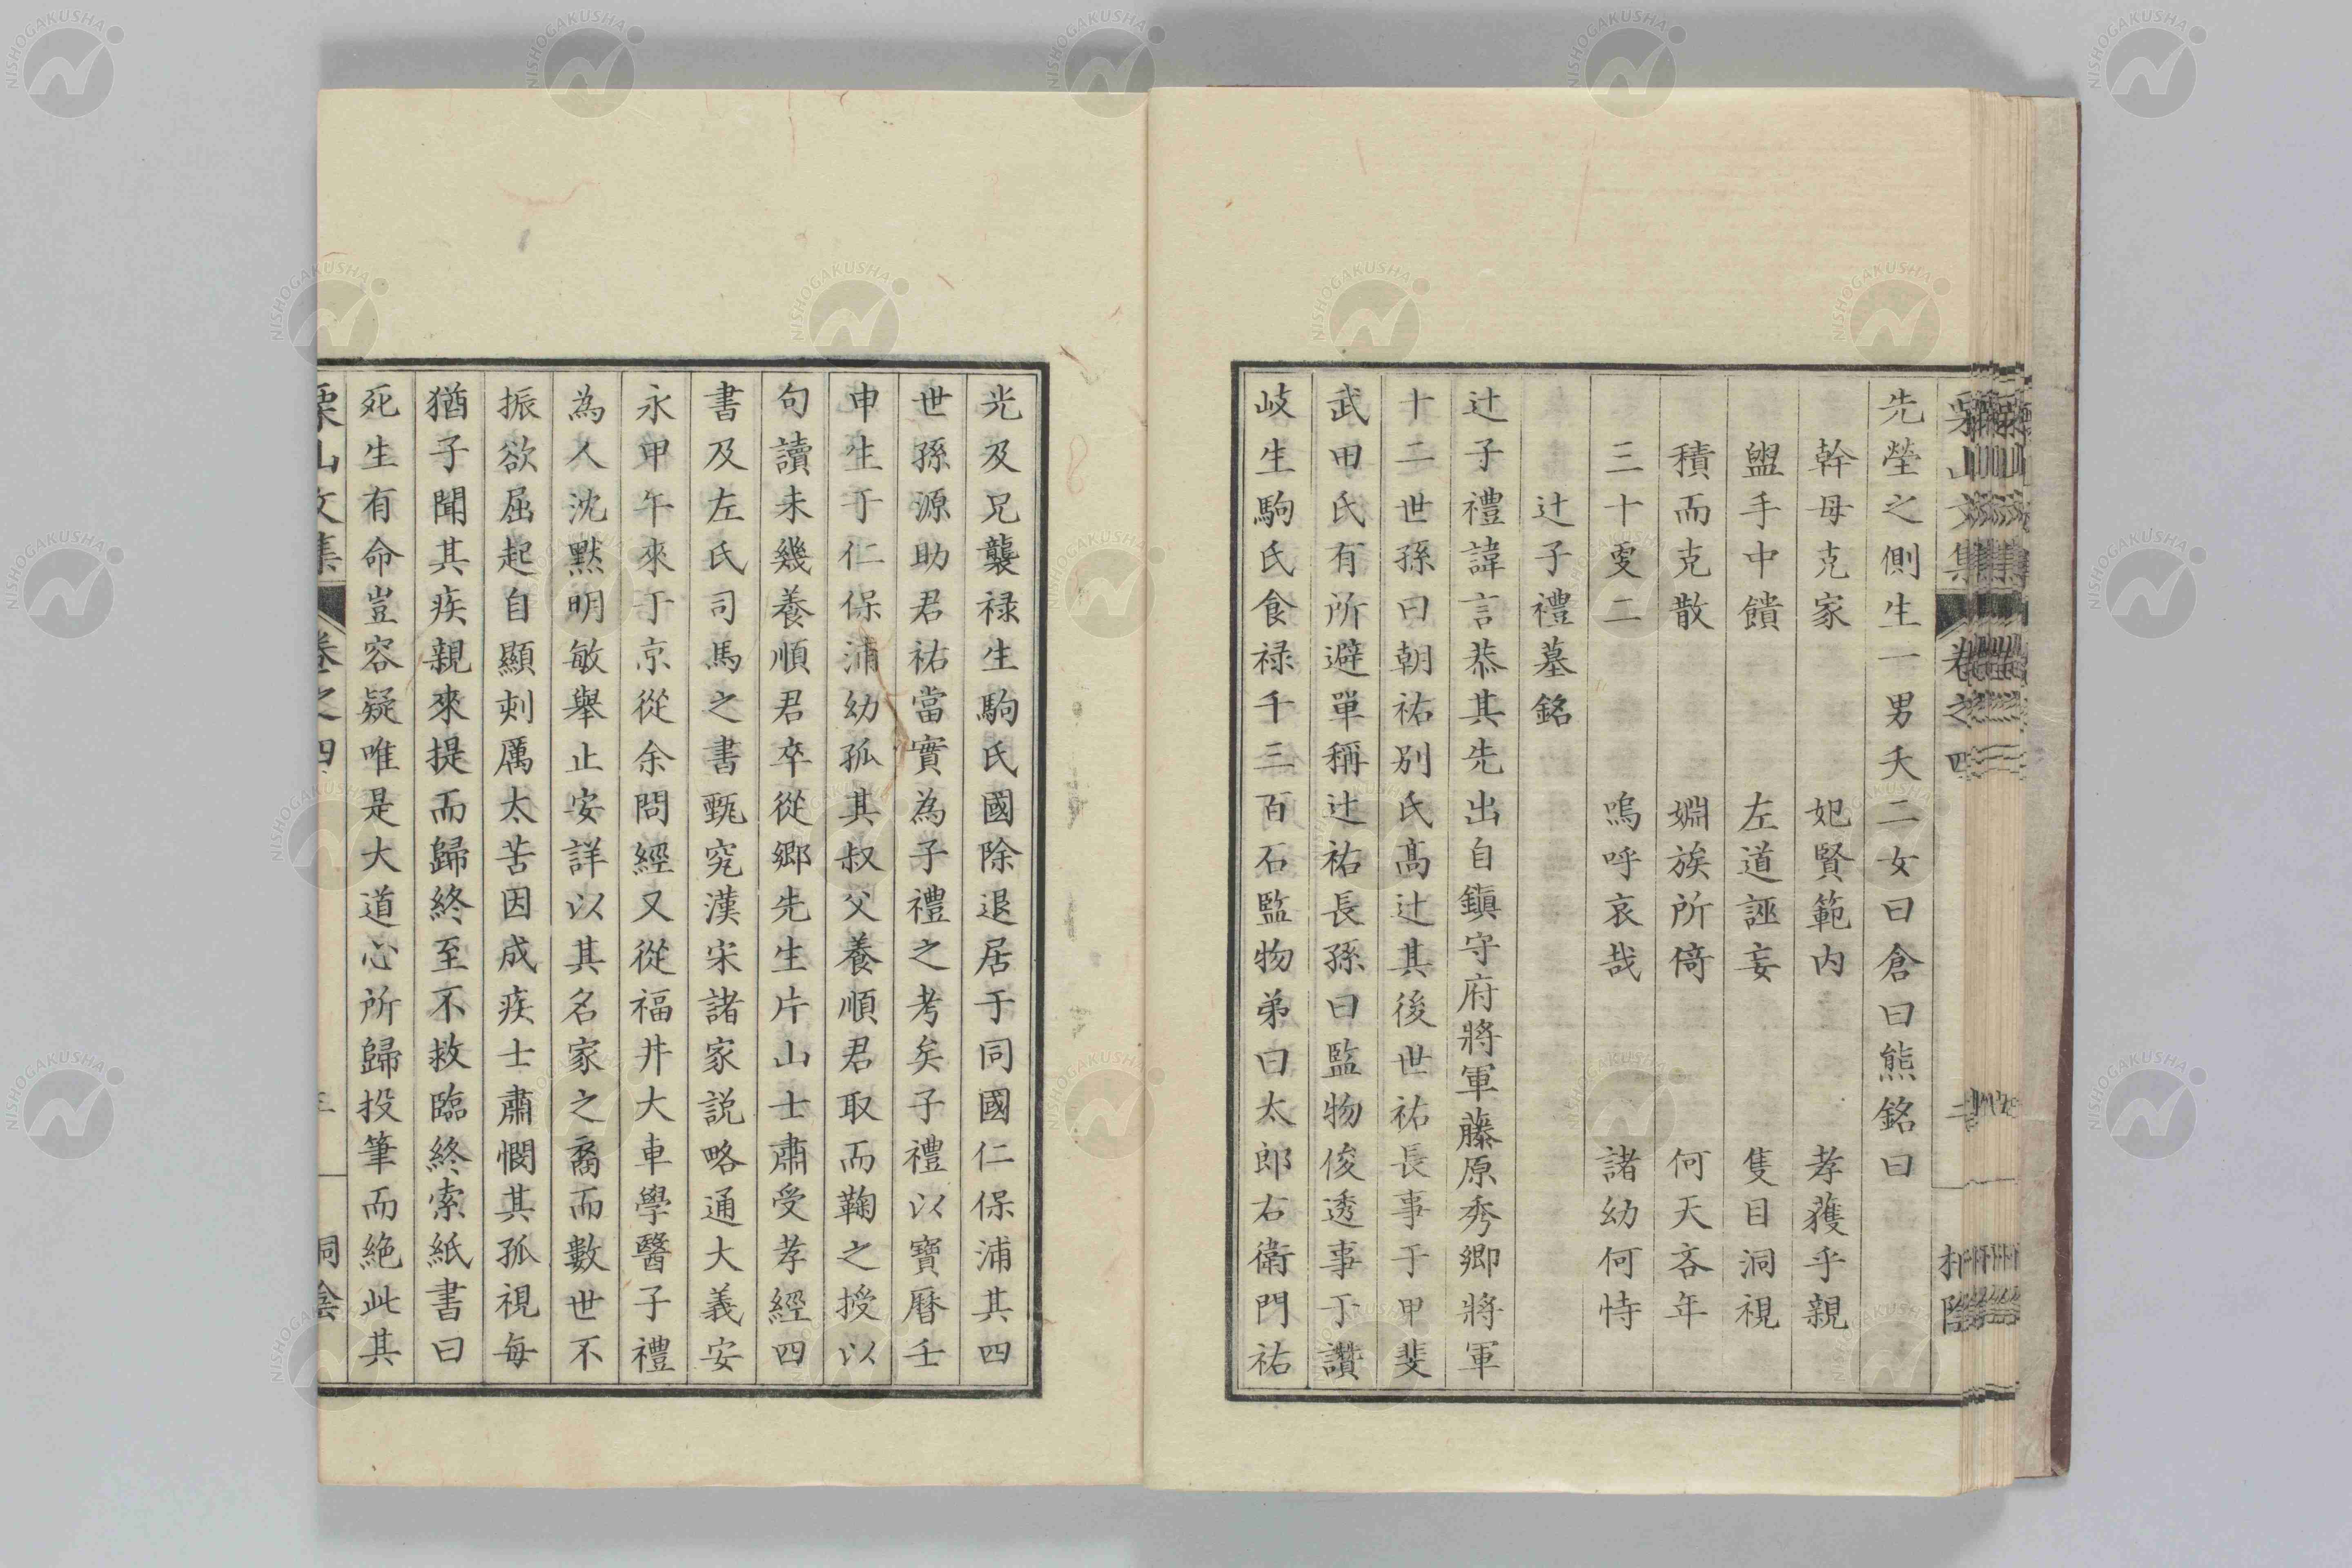 先塋之側生一男夭二女曰倉曰熊銘曰
幹母克家 妃賢範内 孝獲乎親
盥手中饋 左道誣妄 隻目洞視
積而克散 婣族所倚 何天吝年
三十叓二 嗚呼哀哉 諸幼何恃
辻子禮墓銘
辻子禮諱言恭其先出自鎮守府將軍藤原秀卿將軍
十二世孫曰朝祐別氏髙辻其後世祐長事于甲斐
武田氏有所避單稱辻祐長孫曰監物俊透事于讚
岐生駒氏食禄千三百石監物弟曰太郎右衛門祐
光及兄襲禄生駒氏國除退居于同國仁保浦其四
世孫源助君祐當實為子禮之考矣子禮以寶曆壬
申生于仁保浦幼孤其叔父養順君取而鞠之授以
句讀未幾養順君卒從鄉先生片山士肅受孝經四
書及左氏司馬之書甄究漢宋諸家説略通大義安
永甲午來于京從余問經又從福井大車學醫子禮
為人沈黙明敏舉止安詳以其名家之裔而數世不
振欲屈起自顯刺厲太苦因成疾士肅憫其孤視每
猶子聞其疾親來提而歸終至不救臨終索紙書曰
死生有命豈容疑唯是大道心所歸投筆而絶此其
栗山文集 卷之四
NISHOGAKUSHA